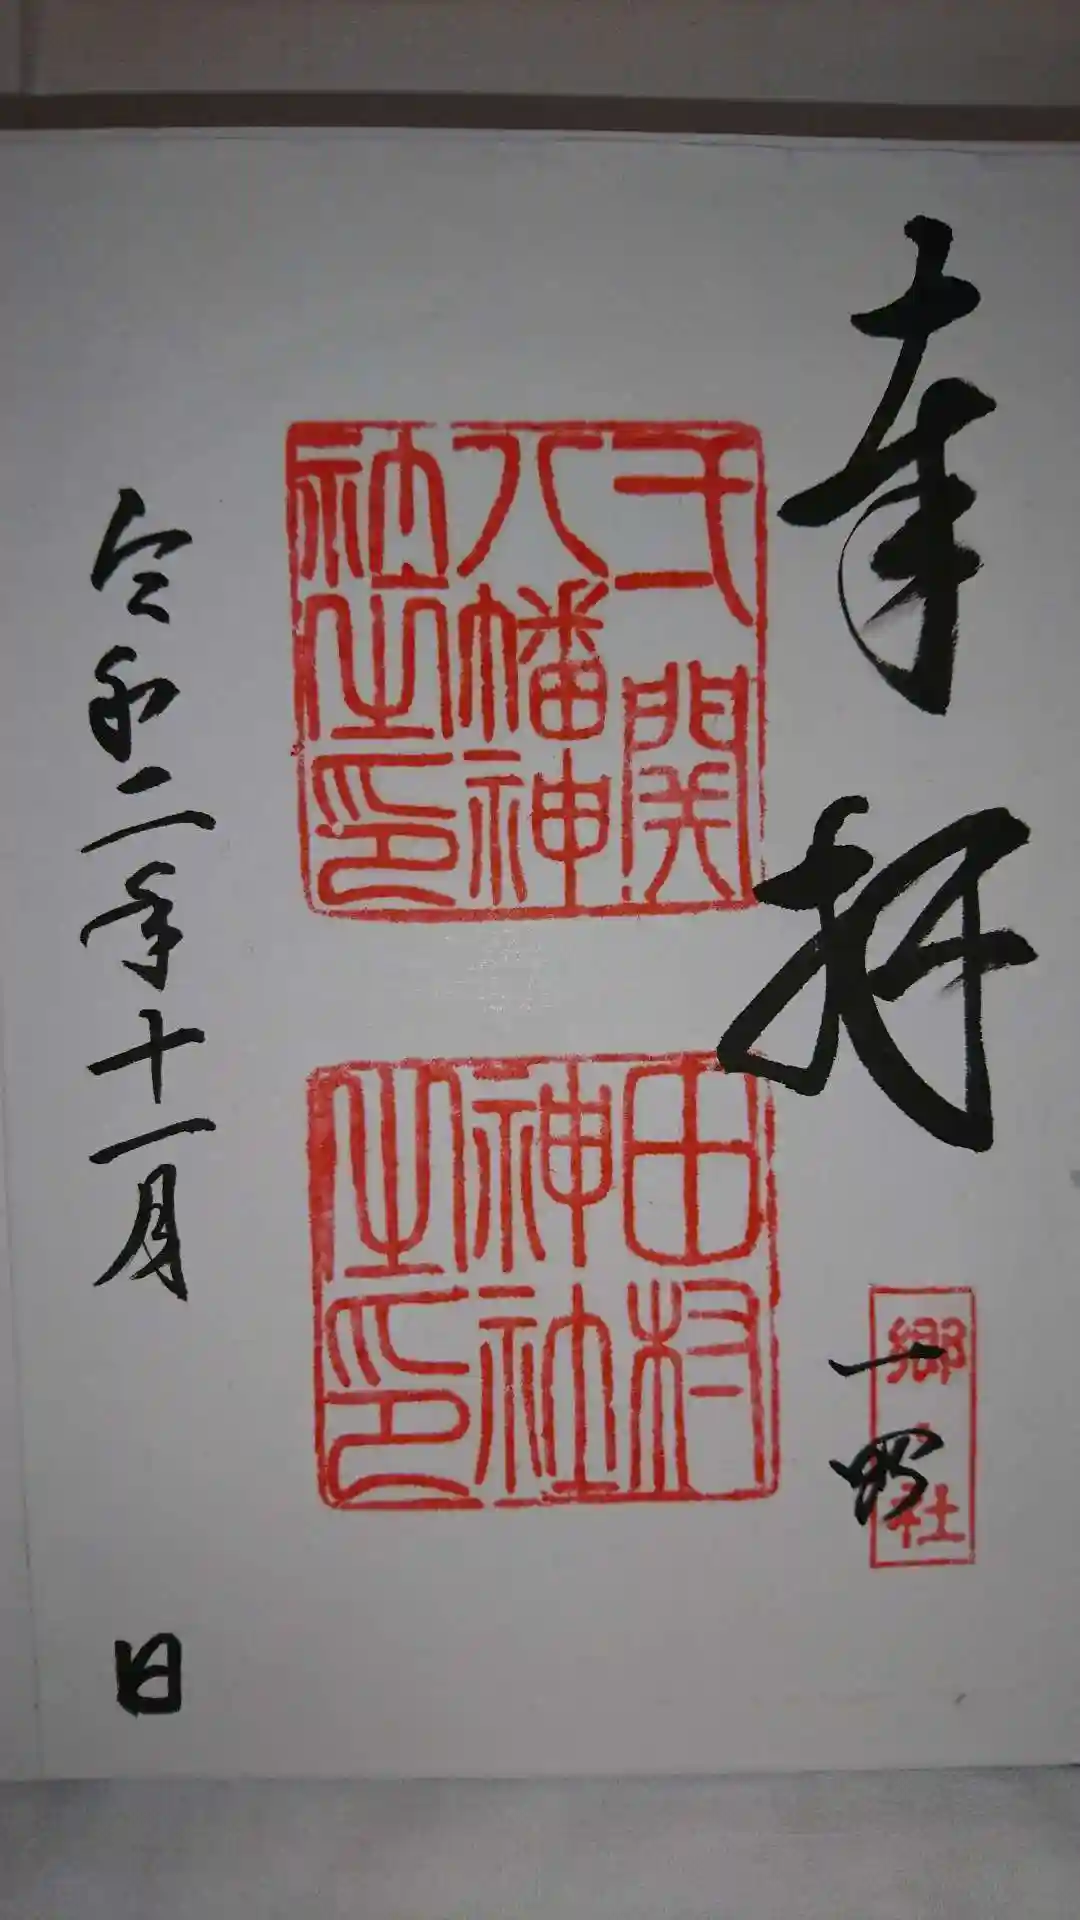 奉拝
郷社
八幡神
社之印
田村
神社
之印
令和二年十一月 日